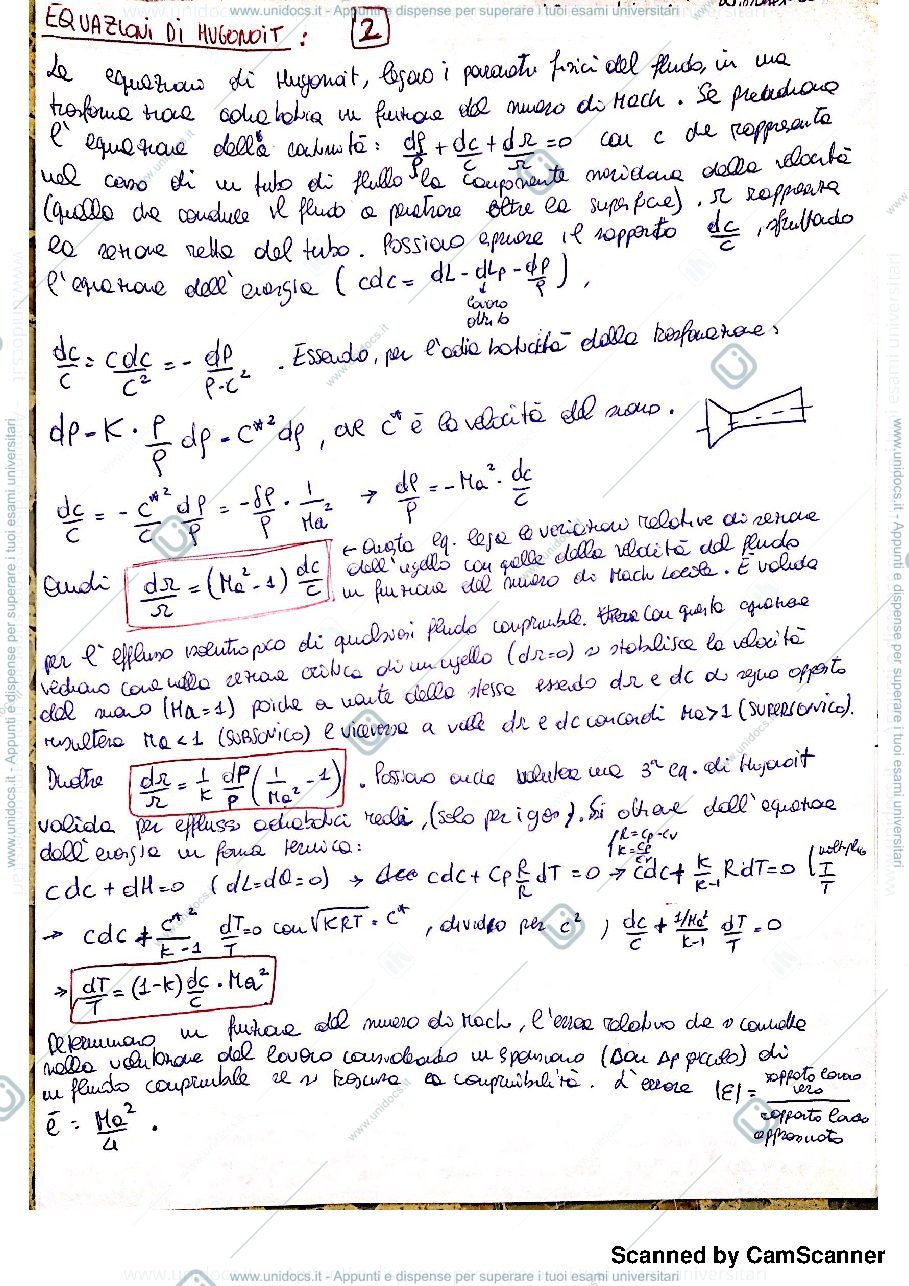 www.unidocs.it - Appunti e dispense per superare i tuoi esami universitari
EQUAZIONI DI HUGONOIT : 2
Le equazioni di Hugonoit, legano i parametri fisici del fluido, in una
trasformazione adiabatica in funzione del numero di Mach. Se prendiamo
l'equazione della continuità: dρ/ρ + dc/c + dΩ/Ω = 0 con c che rappresenta
nel caso di un tubo di flusso la componente meridiana della velocità
(quella che conduce il fluido a penetrare oltre la superficie). Ω rappresenta
la sezione retta del tubo. Possiamo esprimere il rapporto dc/c, sfruttando
l'equazione dell'energia (cdc = dL - dLp - dp/ρ),
lavoro
attrito
dc/c = cdc/c² = - dp/ρ·c² . Essendo, per l'adiabaticità della trasformazione:
dp = K · p/ρ dρ = c*² dρ, ove c* è la velocità del suono.
dc/c = - c*²/c² dρ/ρ = - dρ/ρ · 1/Ma² → dρ/ρ = - Ma² · dc/c
Quindi dΩ/Ω = (Ma² - 1) dc/c ← Questa eq. lega le variazioni relative di sezione
dell'ugello con quelle della velocità del fluido
in funzione del numero di Mach locale. È valida
per l'efflusso isentropico di qualsiasi fluido comprimibile. Con questa equazione
vediamo come nella sezione critica di un ugello (dΩ=0) si stabilisce la velocità
del suono (Ma=1) poiché a monte della stessa essendo dΩ e dc di segno opposto
risulterà Ma<1 (SUBSONICO) e viceversa a valle dΩ e dc concordi Ma>1 (SUPERSONICO).
Inoltre dΩ/Ω = 1/k dp/p (1/Ma² - 1) . Possiamo anche valutare una 3ª eq. di Hugonoit
valida per efflussi adiabatici reali, (solo per i gas). Si ottiene dall'equazione
dell'energia in forma termica:
{R = cp - cv
K = cp/cv
cdc + dH = 0 (dL = dQ = 0) → cdc + Cp R/R dT = 0 → cdc + k/k-1 RdT = 0 (moltiplico T/T
→ cdc + c*²/k-1 dT/T = 0 con √KRT = c* , divido per c² ; dc/c + 1/Ma²/k-1 dT/T = 0
→ dT/T = (1-k) dc/c · Ma²
Determiniamo in funzione del numero di Mach, l'errore relativo che si commette
nella valutazione del lavoro considerando un'espansione (con Δp piccolo) di
un fluido comprimibile se si trascura la comprimibilità. L'errore |ε| = rapporto lavoro vero / rapporto lavoro approssimato
è = Ma²/4 .
Scanned by CamScanner
www.unidocs.it - Appunti e dispense per superare i tuoi esami universitari